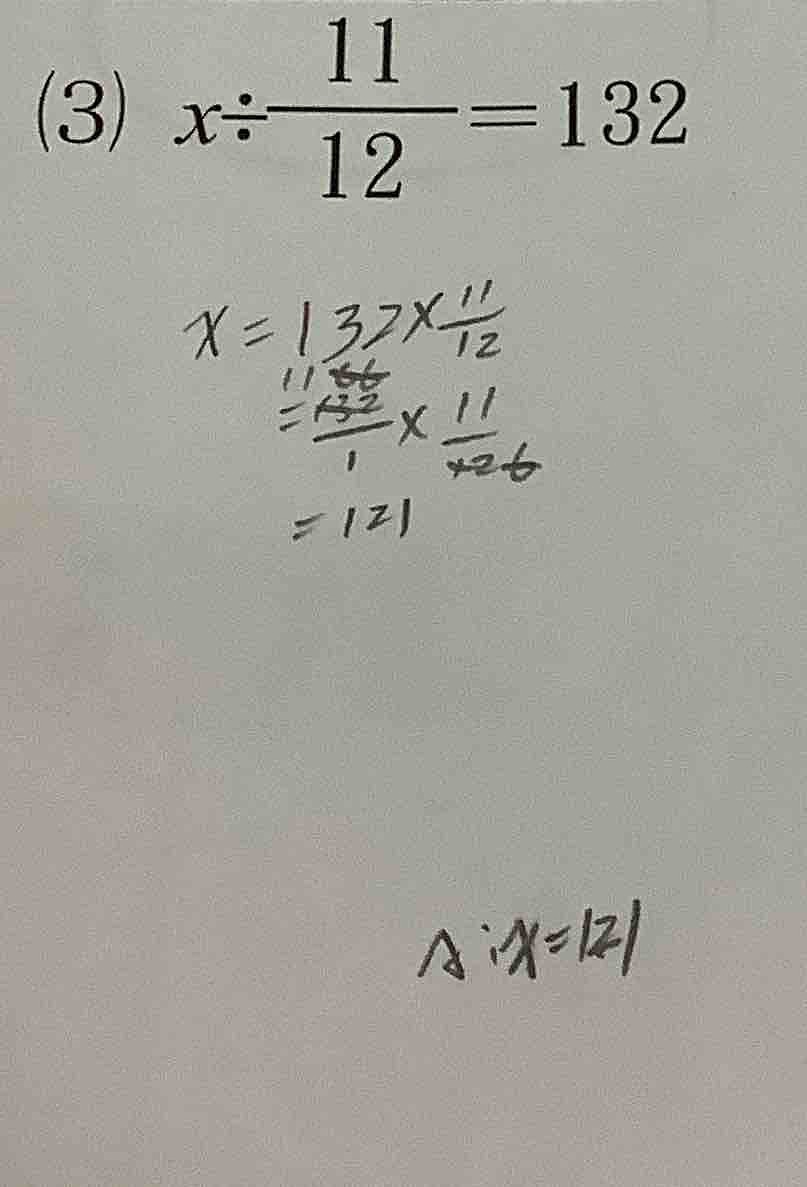 (3) x÷11/12=132
x=132×11/12
11 66
=132/1×11/12 6
=121
A:x=121